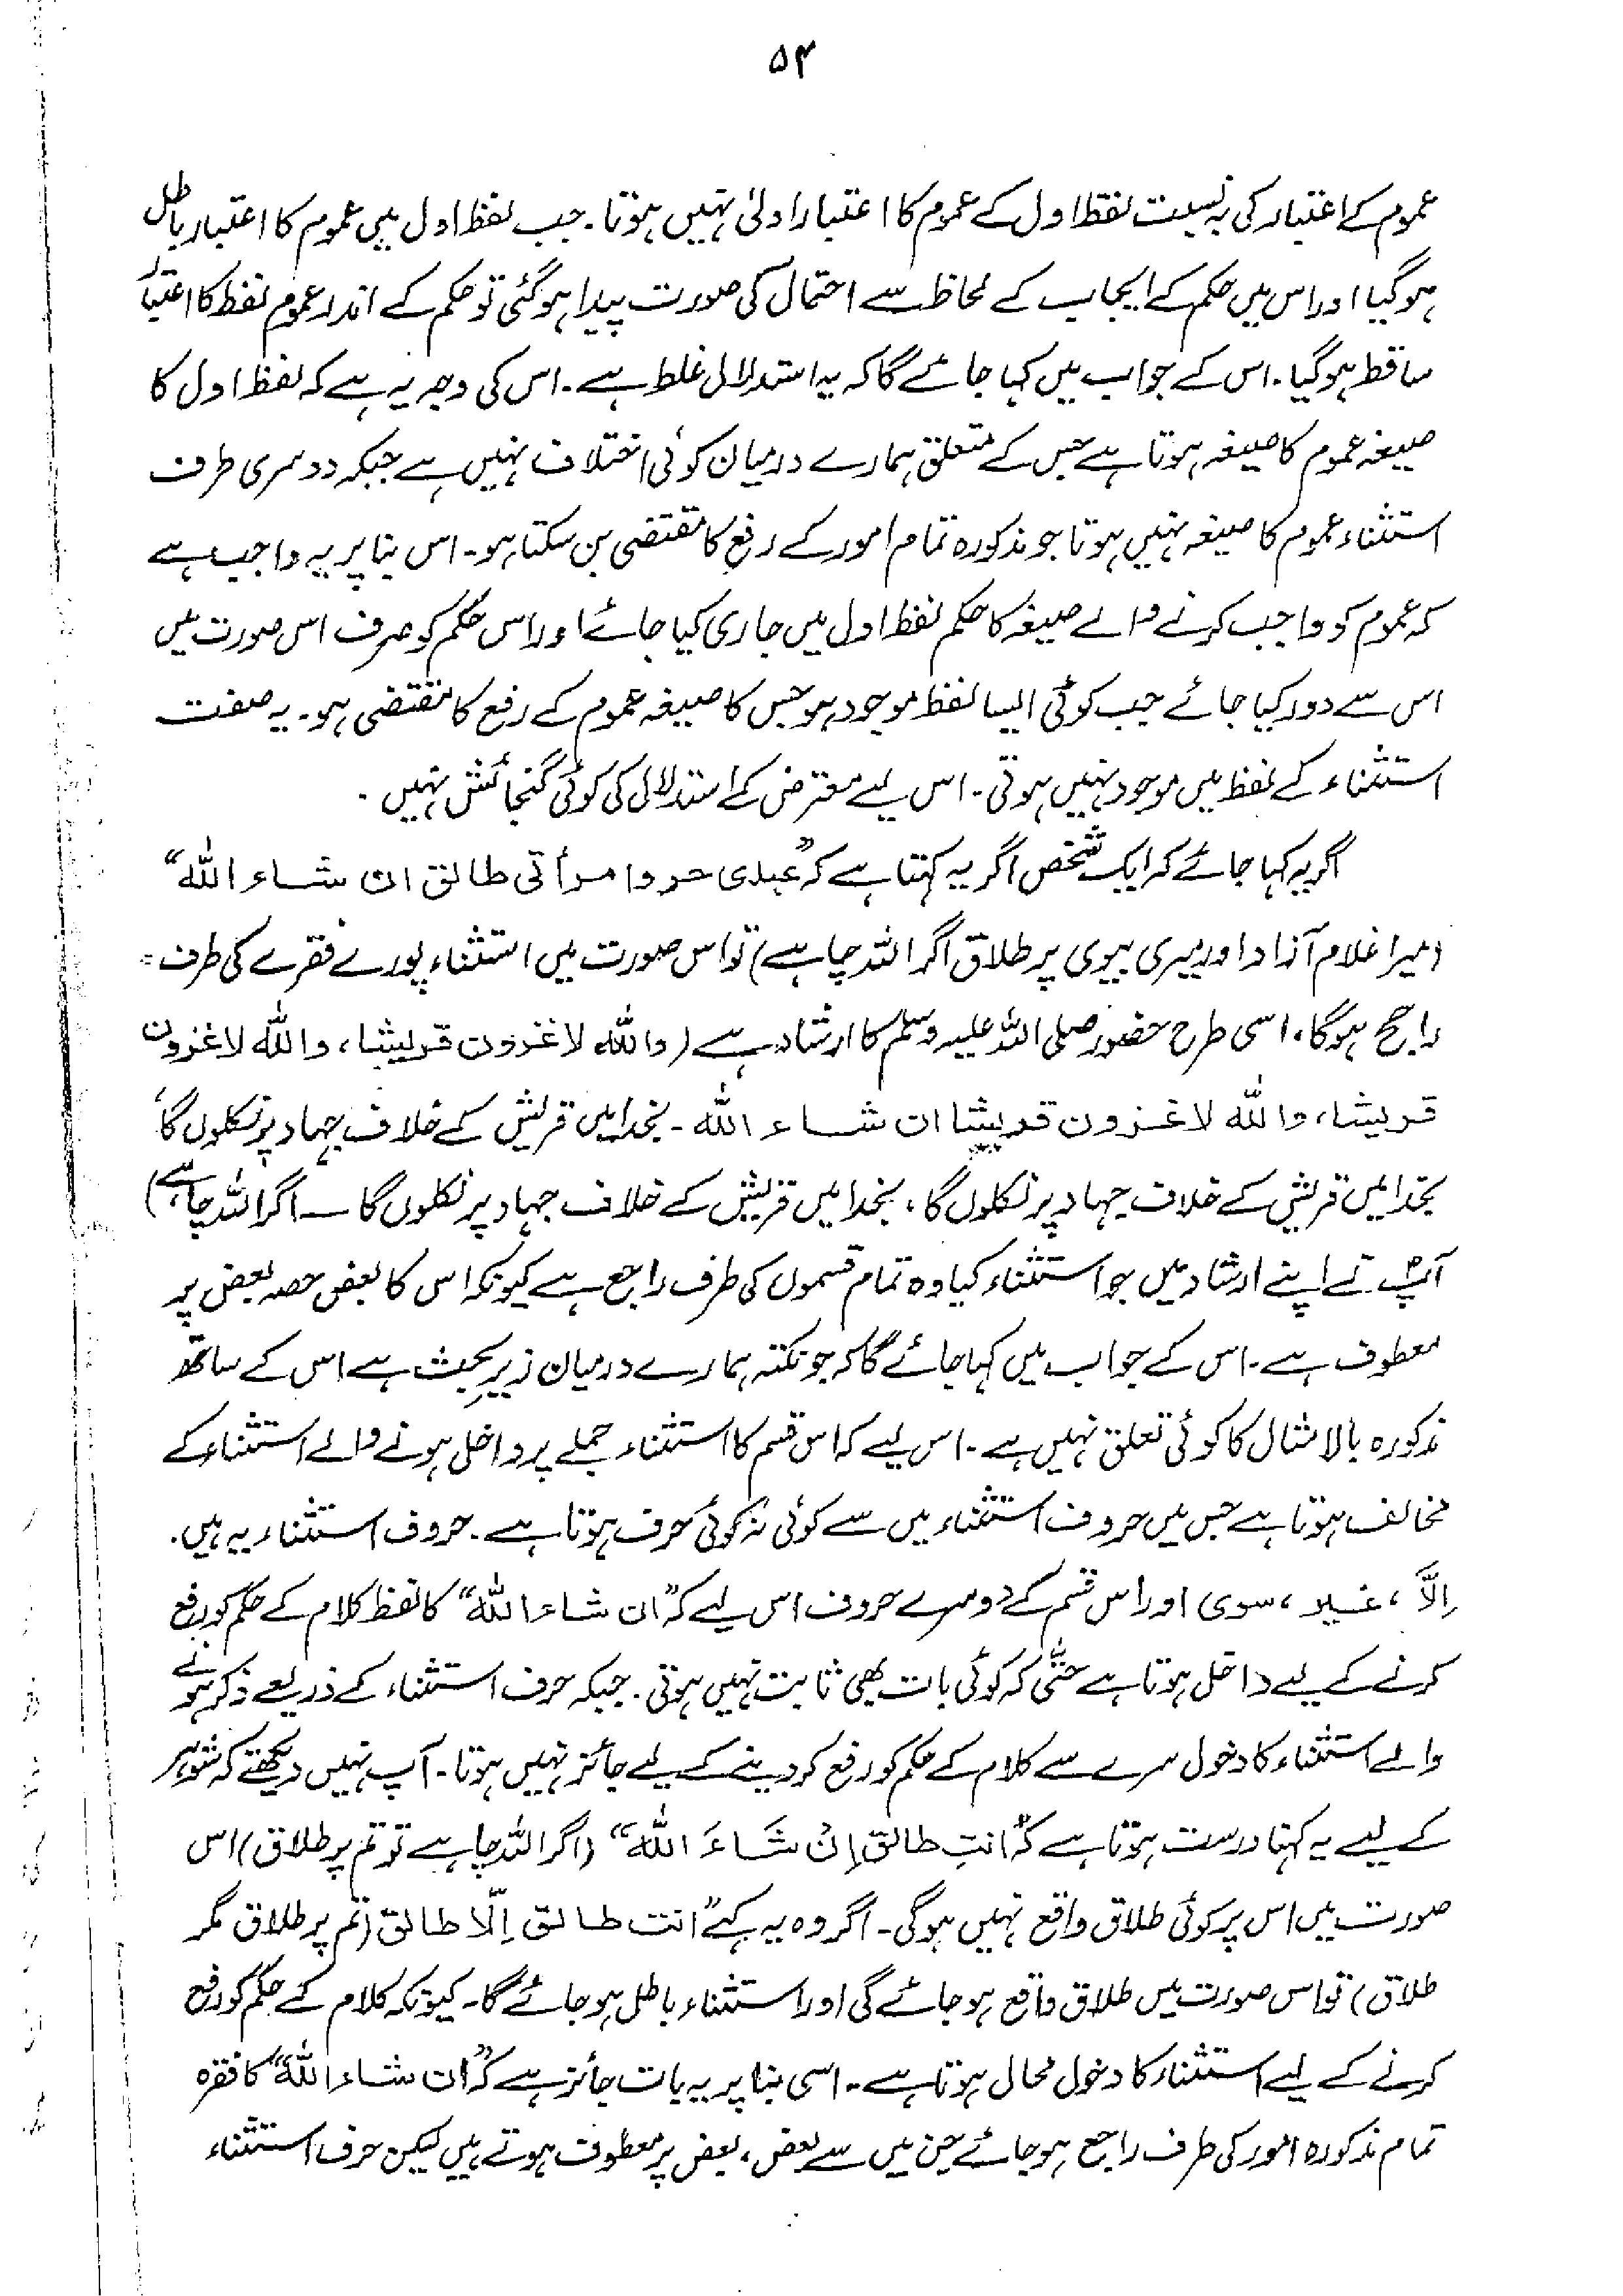 ۵۴
عموم کے اعتبار کی بہ نسبت لفظ اول کے عموم کا اعتبار اولیٰ نہیں ہوتا۔ جب لفظ اول میں عموم کا اعتبار باطل
ہوگیا اور اس میں حکم کے ایجاب کے لحاظ سے احتمال کی صورت پیدا ہوگئی تو حکم کے اندر عموم لفظ کا اعتبار
ساقط ہوگیا۔ اس کے جواب میں کہا جائے گا کہ یہ استدلال غلط ہے۔ اس کی وجہ یہ ہے کہ لفظ اول کا
صیغہ عموم کا صیغہ ہوتا ہے جس کے متعلق ہمارے درمیان کوئی اختلاف نہیں ہے جبکہ دوسری طرف
استثناء عموم کا صیغہ نہیں ہوتا جو مذکورہ تمام امور کے رفع کا مقتضی بن سکتا ہو۔ اس بنا پر یہ واجب ہے
کہ عموم کو واجب کرنے والے صیغہ کا حکم لفظ اول میں جاری کیا جائے اور اس حکم کو صرف اس صورت میں
اس سے دور کیا جائے جب کوئی ایسا لفظ موجود ہو جس کا صیغہ عموم کے رفع کا مقتضی ہو۔ یہ صفت
استثناء کے لفظ میں موجود نہیں ہوتی۔ اس لیے معترض کے استدلال کی کوئی گنجائش نہیں۔
اگر یہ کہا جائے کہ ایک شخص اگر یہ کہتا ہے کہ ”عبدی حر و امرأتی طالق ان شاء اللہ“
(میرا غلام آزاد اور میری بیوی پر طلاق اگر اللہ چاہے) تو اس صورت میں استثناء پورے فقرے کی طرف
راجح ہوگا، اسی طرح حضور صلی اللہ علیہ وسلم کا ارشاد ہے (واللہ لاغزون قریشا، واللہ لاغزون
قریشا، واللہ لاغزون قریشا ان شاء اللہ۔ بخدا میں قریش کے خلاف جہاد پر نکلوں گا،
بخدا میں قریش کے خلاف جہاد پر نکلوں گا، بخدا میں قریش کے خلاف جہاد پر نکلوں گا ــ اگر اللہ چاہے)
آپؐ نے اپنے ارشاد میں جو استثناء کیا وہ تمام قسموں کی طرف راجع ہے کیونکہ اس کا بعض حصہ بعض پر
معطوف ہے۔ اس کے جواب میں کہا جائے گا کہ جو نکتہ ہمارے درمیان زیرِ بحث ہے اس کے ساتھ
مذکورہ بالا مثال کا کوئی تعلق نہیں ہے۔ اس لیے کہ اس قسم کا استثناء جملے پر داخل ہونے والے استثناء کے
مخالف ہوتا ہے جس میں حروف استثناء میں سے کوئی نہ کوئی حرف ہوتا ہے۔ حروف استثناء یہ ہیں۔
اِلَّا، غیر، سوی اور اس قسم کے دوسرے حروف اس لیے کہ ”ان شاء اللہ“ کا لفظ کلام کے حکم کو رفع
کرنے کے لیے داخل ہوتا ہے حتّٰی کہ کوئی بات بھی ثابت نہیں ہوتی۔ جبکہ حرف استثناء کے ذریعے ذکر ہونے
والے استثناء کا دخول سرے سے کلام کے حکم کو رفع کر دینے کے لیے جائز نہیں ہوتا۔ آپ نہیں دیکھتے کہ شوہر
کے لیے یہ کہنا درست ہوتا ہے کہ ”انتِ طالق اِنْ شَاءَ اللہ“ (اگر اللہ چاہے تو تم پر طلاق) اس
صورت میں اس پر کوئی طلاق واقع نہیں ہوگی۔ اگر وہ یہ کہے ”انت طالق اِلّا طالق (تم پر طلاق مگر
طلاق) تو اس صورت میں طلاق واقع ہو جائے گی اور استثناء باطل ہو جائے گا۔ کیونکہ کلام کے حکم کو رفع
کرنے کے لیے استثناء کا دخول محال ہوتا ہے۔ اسی بنا پر یہ بات جائز ہے کہ ”ان شاء اللہ“ کا فقرہ
تمام مذکورہ امور کی طرف راجع ہو جائے جن میں سے بعض، بعض پر معطوف ہوتے ہیں لیکن حرف استثناء